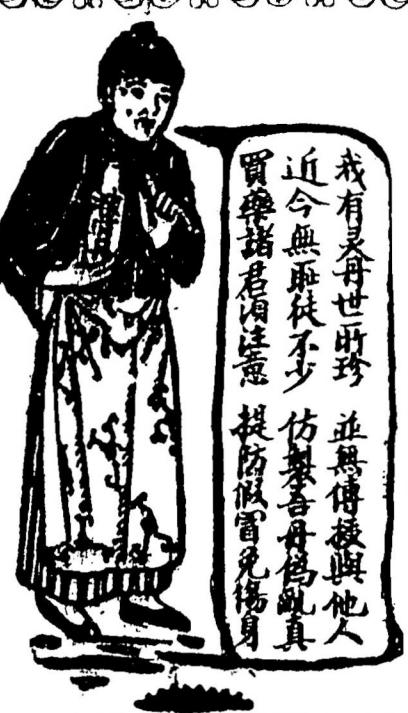 我有灵丹世所珍　並無傳授與他人
近今無耻徒不少　仿製吾丹偽亂真
買藥諸君湏注意　提防假冒免傷身